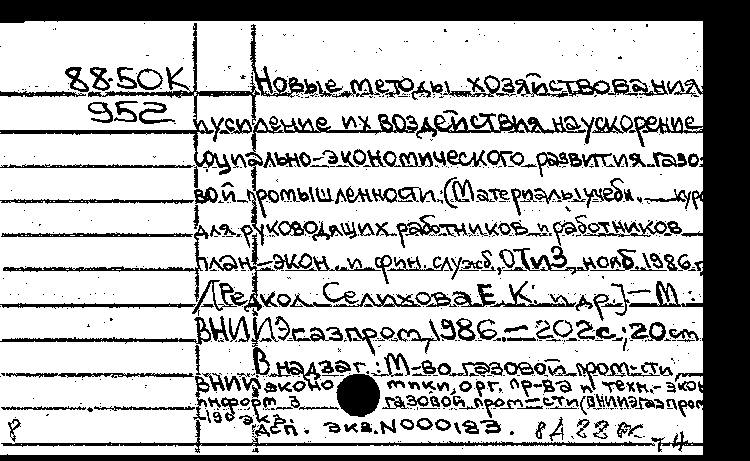 88-50К Новые методы хозяйствования
952
и усиление их воздействия на ускорение
социально-экономического развития газо-
вой промышленности. (Материалы учебн. курс
для руководящих работников и работников
план.-экон. и фин. служб, ОТиЗ, нояб. 1986 г.
/[Редкол. Селихова Е.К. и др.]-М.:
ВНИИЭгазпром, 1986.-202с.; 20 см
В надзаг.: М-во газовой пром-сти,
ВНИИ эконо мики, орг. пр-ва и техн.-экон
информ з газовой пром-сти (ВНИИЭгазпром
-190 экз.
8 ДСП. экз. N000183.